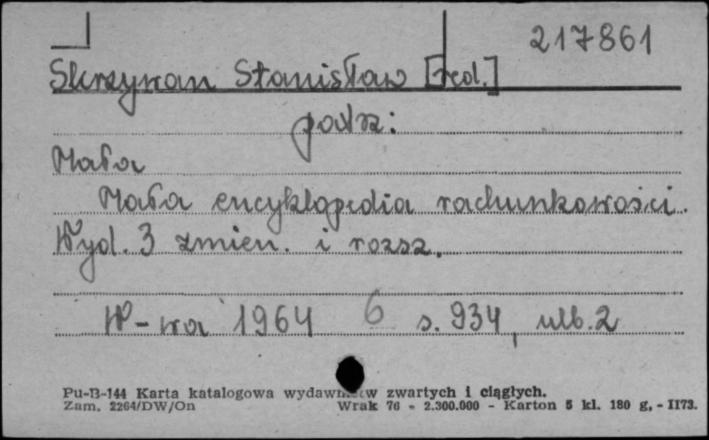 217861
Skrzywan Stanisław [red.]
patrz:
Mała
Mała encyklopedia rachunkowości.
Wyd. 3 zmien. i rozsz.
W-wa 1964 6 s. 934, nlb. 2
Pu-B-144 Karta katalogowa wydawnictw zwartych i ciągłych.
Zam. 2264/DW/On Wrak 76 - 2.300.000 - Karton 5 kl. 180 g, - II73.